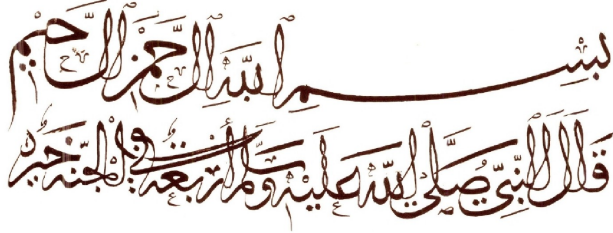 بسم الله الرحمن الرحيم
قال النبي صلى الله عليه وسلم أربعة في الجنة